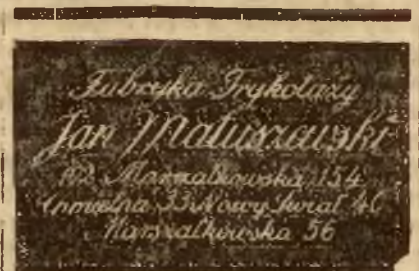 Fabryka Trykotaży
Jan Matuszewski
Marszałkowska 154
Chmielna 33 Nowy Świat 40
Marszałkowska 56